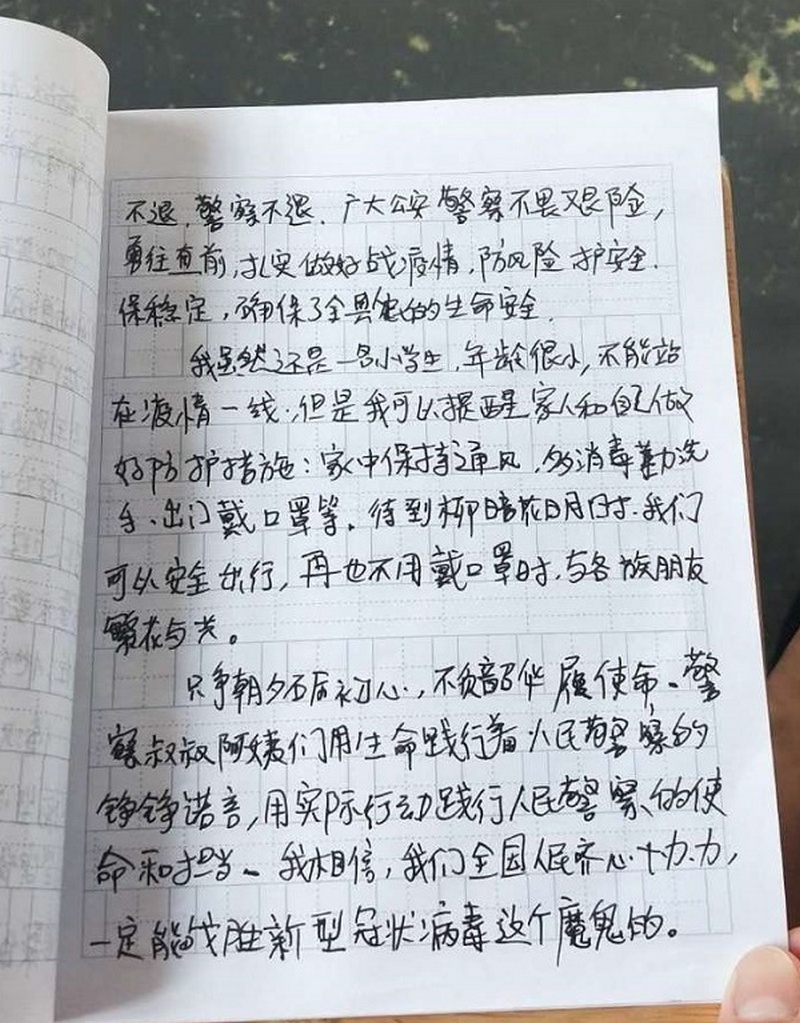 不退,警察不退.广大公安警察不畏艰险,
勇往直前,扎实做好战疫情,防风险护安全.
保稳定,确保了全县的生命安全.
我虽然还是一名小学生,年龄很小,不能站
在疫情一线.但是我可以提醒家人和自己做
好防护措施:家中保持通风,多消毒勤洗
手、出门戴口罩等.待到柳暗花明时.我们
可以安全出行,再也不用戴口罩时.与各族朋友
繁花与共。
只争朝夕不忘初心,不负韶华履使命.警
察叔叔阿姨们用生命践行着人民警察的
铮铮诺言,用实际行动践行人民警察的使
命和担当.我相信,我们全国人民齐心十力,
一定能战胜新型冠状病毒这个魔鬼的。